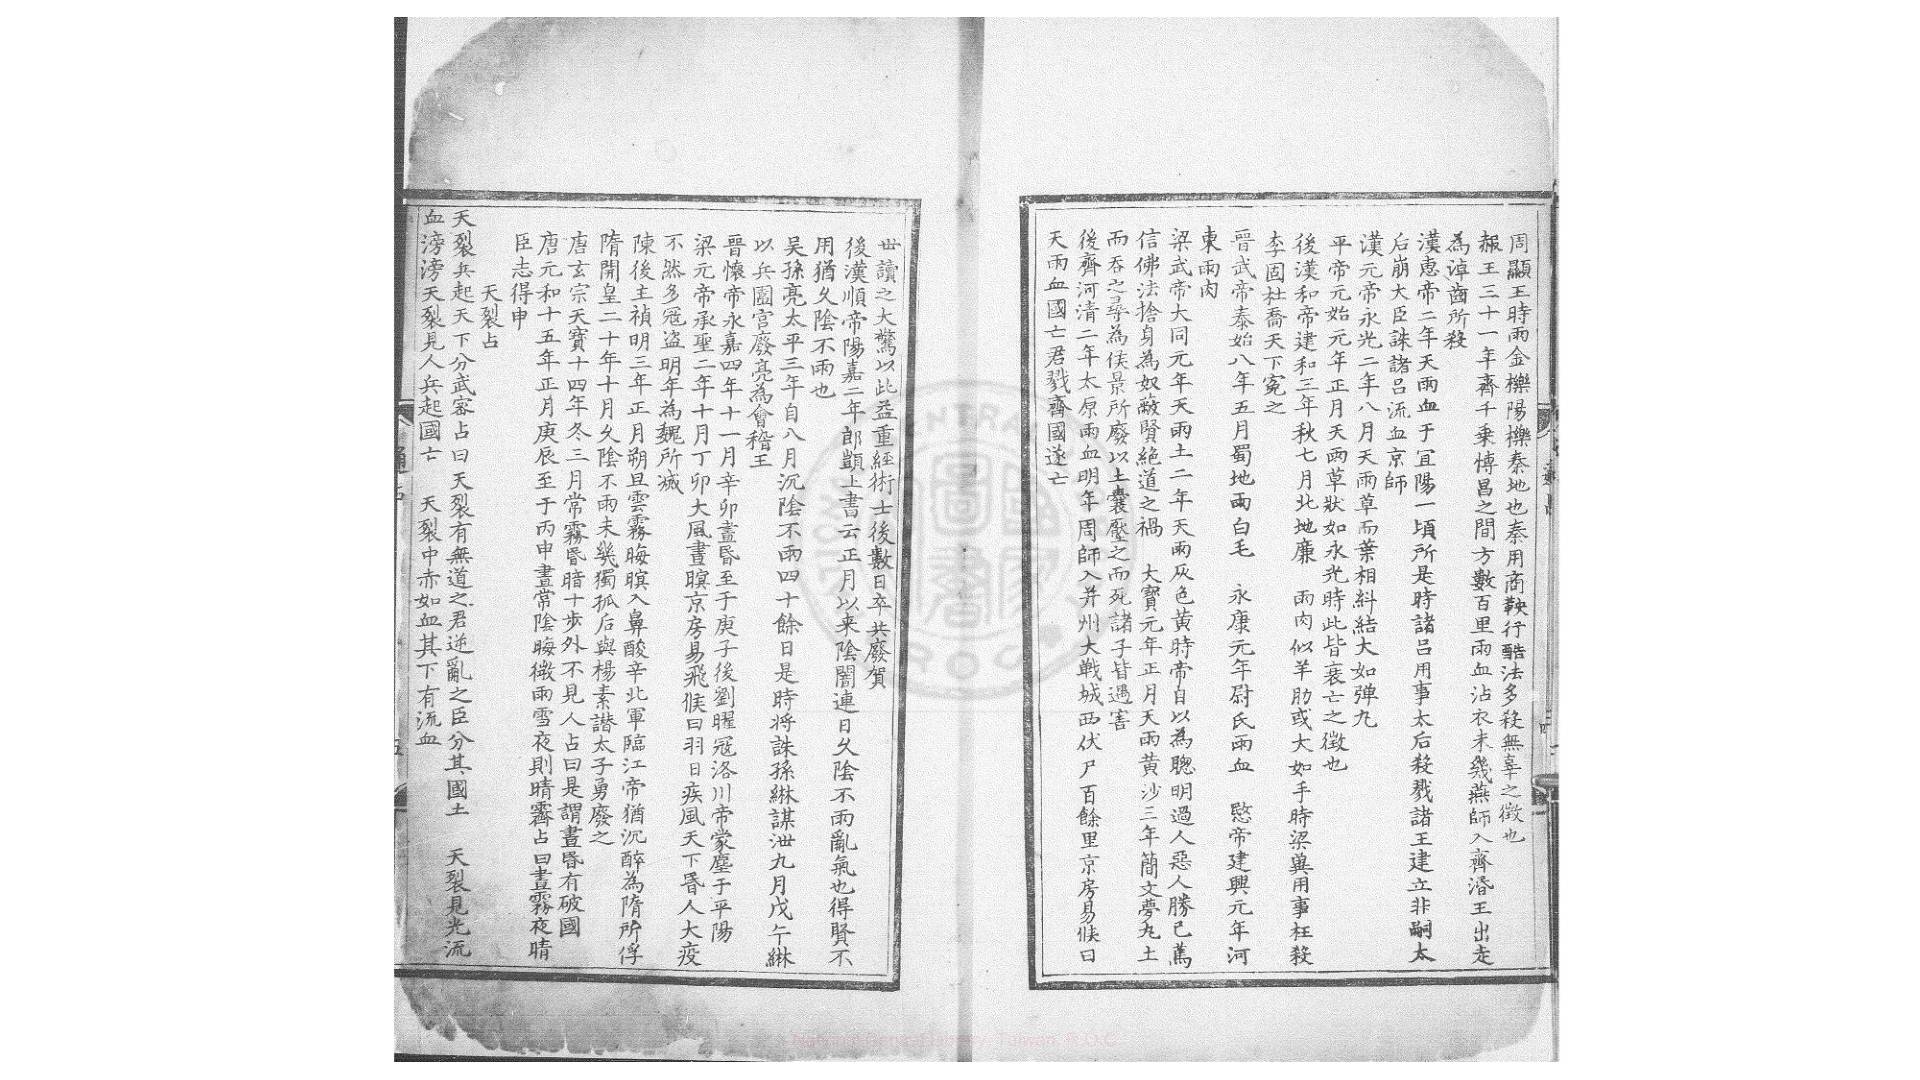 周顯王時雨金櫟陽櫟秦地也秦用商鞅行酷法多殺無辜之徵也
赧王三十一年齊千乗博昌之間方數百里雨血沾衣未幾燕師入齊湣王出走
為淖齒所殺
漢惠帝二年天雨血于宜陽一頃所是時諸吕用事太后殺戮諸王建立非嗣太
后崩大臣誅諸吕流血京師
漢元帝永光二年八月天雨草而葉相糾結大如弹丸
平帝元始元年正月天雨草狀如永光時此皆衰亡之徵也
後漢和帝建和三年秋七月北地廉 雨肉似羊肋或大如手時梁兾用事枉殺
李固杜喬天下寃之
晉武帝泰始八年五月蜀地雨白毛 永康元年尉氏雨血 愍帝建興元年河
東雨肉
梁武帝大同元年天雨土二年天雨灰色黄時帝自以為聰明過人惡人勝已篤
信佛法捨身為奴蔽賢絶道之禍 大寳元年正月天雨黄沙三年簡文夢丸土
而吞之尋為侯景所廢以土囊壓之而死諸子皆遇害
後齊河清二年太原雨血明年周師入并州大戦城西伏尸百餘里京房易候曰
天雨血國亡君戮齊國遂亡
丗讀之大驚以此益重經術士後數日卒共廢賀
後漢順帝陽嘉二年郎顗上書云正月以来陰闇連日久陰不雨亂氣也得賢不
用猶久陰不雨也
吴孫亮太平三年自八月沉陰不雨四十餘日是時将誅孫綝謀泄九月戊午綝
以兵圍宫廢亮為會稽王
晉懷帝永嘉四年十一月辛卯晝昏至于庚子後劉曜冦洛川帝蒙塵于平陽
梁元帝承聖二年十月丁卯大風晝瞑京房易飛候曰羽日疾風天下昏人大疫
不然多冦盗明年為魏所滅
陳後主禎明三年正月朔旦雲霧晦瞑入鼻酸辛北軍臨江帝猶沉醉為隋所俘
隋開皇二十年十月久陰不雨未幾獨孤后與楊素譖太子勇廢之
唐玄宗天寳十四年冬三月常霧昏暗十步外不見人占曰是謂晝昏有破國
唐元和十五年正月庚辰至于丙申晝常陰晦微雨雪夜則晴霽占曰晝霧夜晴
臣志得申
天裂占
天裂兵起天下分武宻占曰天裂有無道之君逆亂之臣分其國土 天裂見光流
血滂滂天裂見人兵起國亡 天裂中赤如血其下有流血